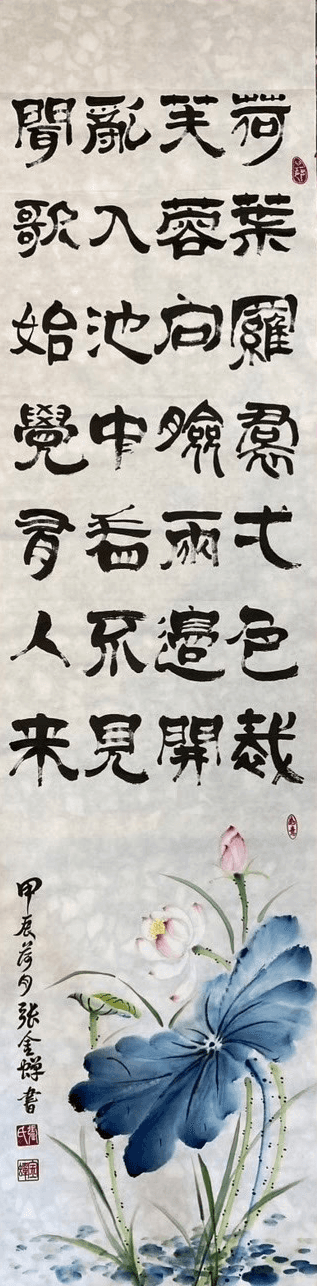 荷葉羅裠弌色裁
芙蓉向臉兩邊開
亂入池中看不見
聞歌始覺有人来
甲辰荷月張金蟬書
張氏